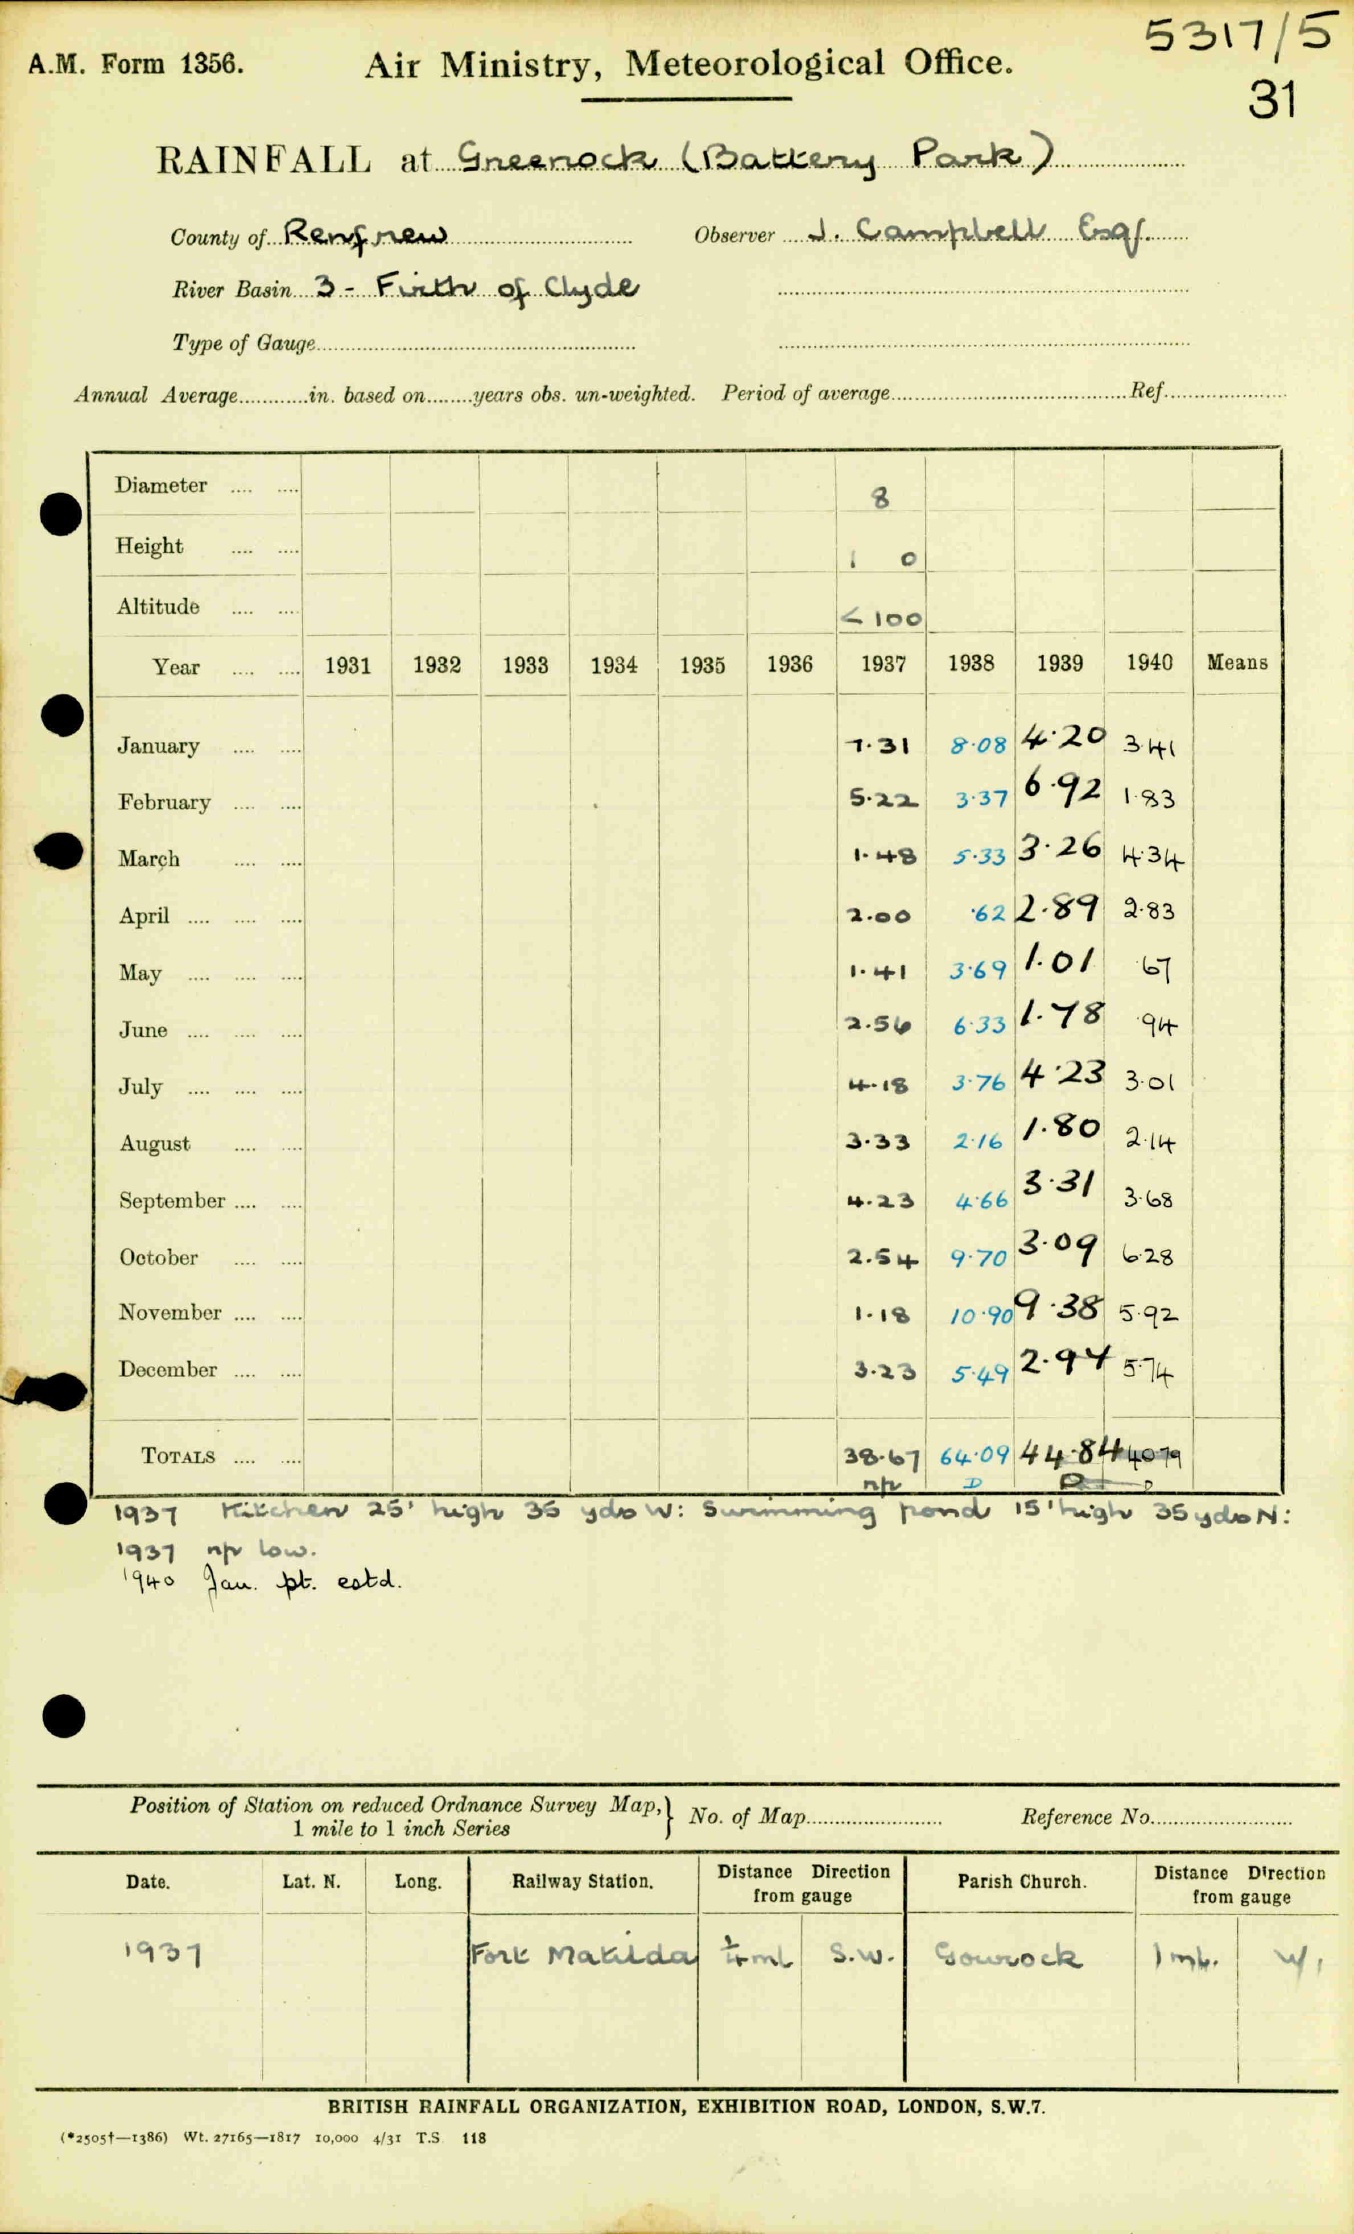 5317/5
A.M. Form 1356.
Air Ministry, Meteorological Office.
31
RAINFALL at Greenock (Battery Park)
County of Renfrew Observer J. Campbell Esq.
River Basin 3 - Firth of Clyde
Type of Gauge
Annual Average in. based on years obs. un-weighted. Period of average Ref.
Diameter 8
Height 1 0
Altitude <100
Year 1931 1932 1933 1934 1935 1936 1937 1938 1939 1940 Means
January 7.31 8.08 4.20 3.41
February 5.22 3.37 6.92 1.83
March 1.48 5.33 3.26 4.34
April 2.00 .62 2.89 2.83
May 1.41 3.69 1.01 .67
June 2.56 6.33 1.78 .94
July 4.18 3.76 4.23 3.01
August 3.33 2.16 1.80 2.14
September 4.23 4.66 3.31 3.68
October 2.54 9.70 3.09 6.28
November 1.18 10.90 9.38 5.92
December 3.23 5.49 2.97 5.74
TOTALS 38.67 64.09 44.84 40.79
np D D
1937 Kitchen 25' high 35 yds W: Swimming pond 15' high 35 yds N:
1937 np low.
1940 Jan. pt. estd.
Position of Station on reduced Ordnance Survey Map, 1 mile to 1 inch Series } No. of Map Reference No.
Date. Lat. N. Long. Railway Station. Distance Direction from gauge Parish Church. Distance Direction from gauge
1937 Fort Matilda ¼ ml S.W. Gourock 1 ml. W.
BRITISH RAINFALL ORGANIZATION, EXHIBITION ROAD, LONDON, S.W.7.
(*2505†—1386) Wt. 27165—1817 10,000 4/31 T.S. 118